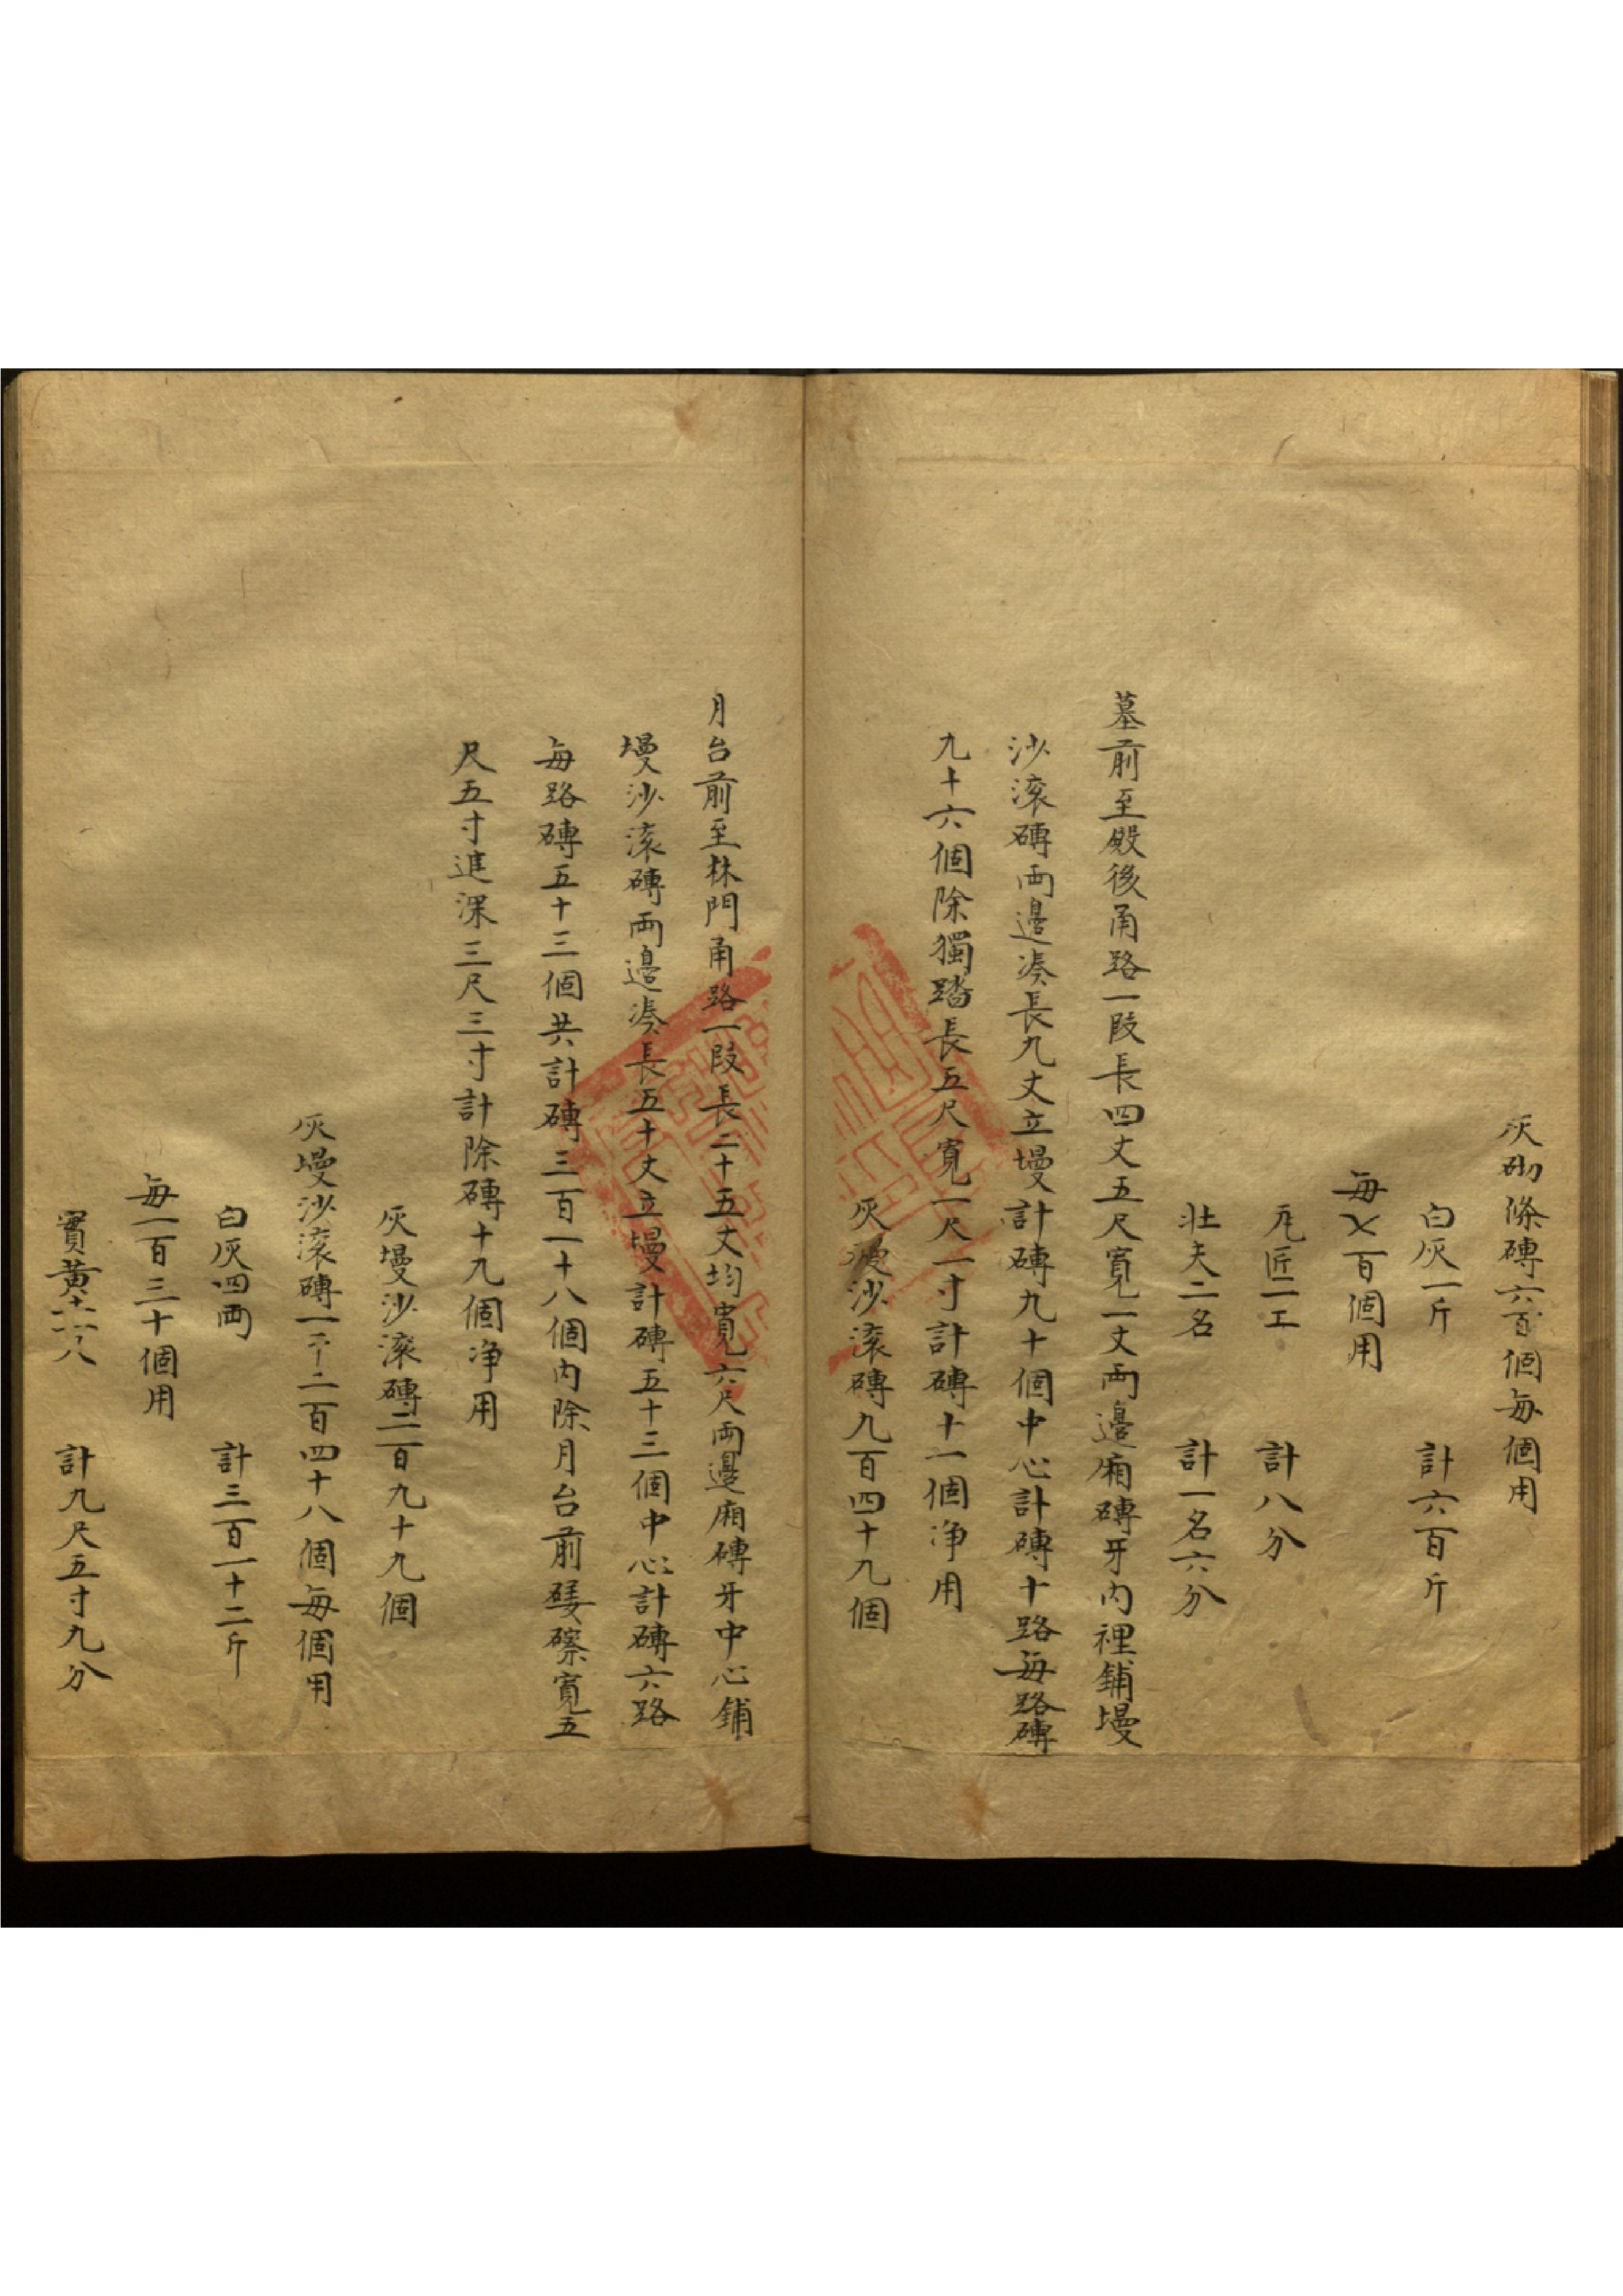 灰砌條磚六百個每個用
白灰一斤　計六百斤
每乂百個用
瓦匠一工　計八分
壯夫二名　計一名六分
墓前至殿後甬路一段長四丈五尺寬一丈両邊廂磚牙内裡鋪墁
沙滚磚両邉湊長九丈立墁計磚九十個中心計磚十路每路磚
九十六個除獨踏長五尺寬一尺一寸計磚十一個净用
灰墁沙滚磚九百四十九個
月台前至林門甬路一段長二十五丈均寬六尺両邊廂磚牙中心鋪
墁沙滚磚両邉湊長五十丈立墁計磚五十三個中心計磚六路
每路磚五十三個共計磚三百一十八個内除月台前礓磜寬五
尺五寸進深三尺三寸計除磚十九個净用
灰墁沙滚磚二百九十九個
灰墁沙滚磚一千二百四十八個每個用
白灰四両　計三百一十二斤
每一百三十個用
實黄土一尺　計九尺五寸九分